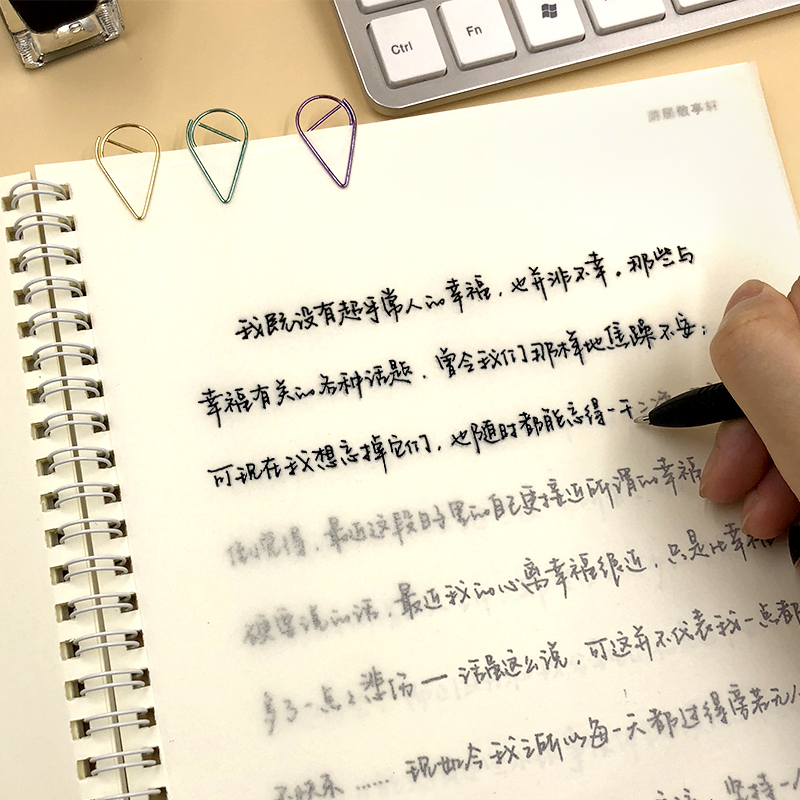 Ctrl
Fn
敬亭轩
我既没有超乎常人的幸福，也并非不幸。那些与
幸福有关的各种话题，曾令我们那样地焦躁不安；
可现在我想忘掉它们，也随时都能忘得一干二净
倒觉得，最近这段日子里的自己更接近所谓的幸福
硬要说的话，最近我的心离幸福很近，只是比幸福
多了一点点悲伤——话虽这么说，可这并不代表我一点都
不快乐……现如今我之所以每一天都过得旁若无人
坚持一